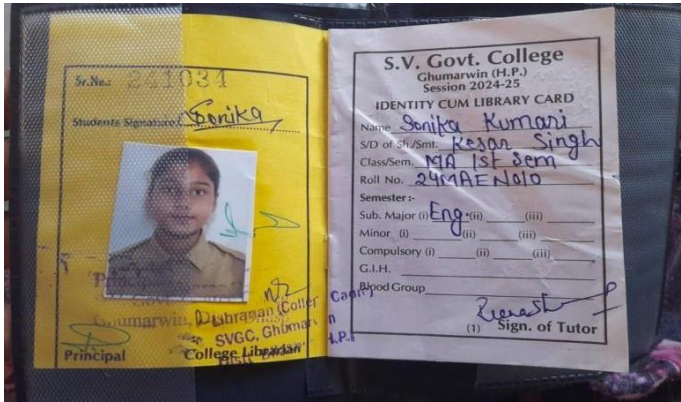 Sr.No.: 241034
Students Signature Sonika
Principal
Ghumarwin,
Librarian (College Cadre)
SVGC, Ghumarwin
Principal
College Librarian
S.V. Govt. College
Ghumarwin (H.P.)
Session 2024-25
IDENTITY CUM LIBRARY CARD
Name Sonika Kumari
S/D of Sh./Smt. Kesar Singh
Class/Sem. MA 1st Sem
Roll No. 24MAEN010
Semester :-
Sub. Major (i) Eng. (ii) (iii)
Minor (i) (ii) (iii)
Compulsory (i) (ii) (iii)
G.I.H.
Blood Group
(1) Sign. of Tutor